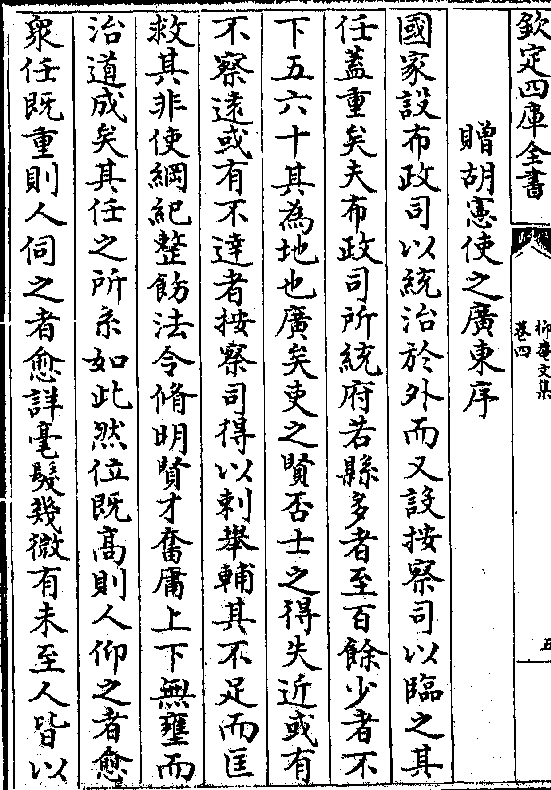 欽定四庫全書
抑菴文集
卷四
五
贈胡憲使之廣東序
國家設布政司以統治於外而又設按察司以臨之其
任蓋重矣夫布政司所統府若縣多者至百餘少者不
下五六十其為地也廣矣吏之賢否士之得失近或有
不察遠或有不達者按察司得以刺舉輔其不足而匡
救其非使綱紀整飭法令脩明賢才奮庸上下無壅而
治道成矣其任之所系如此然位既高則人仰之者愈
衆任既重則人伺之者愈詳毫髮幾微有未至人皆以